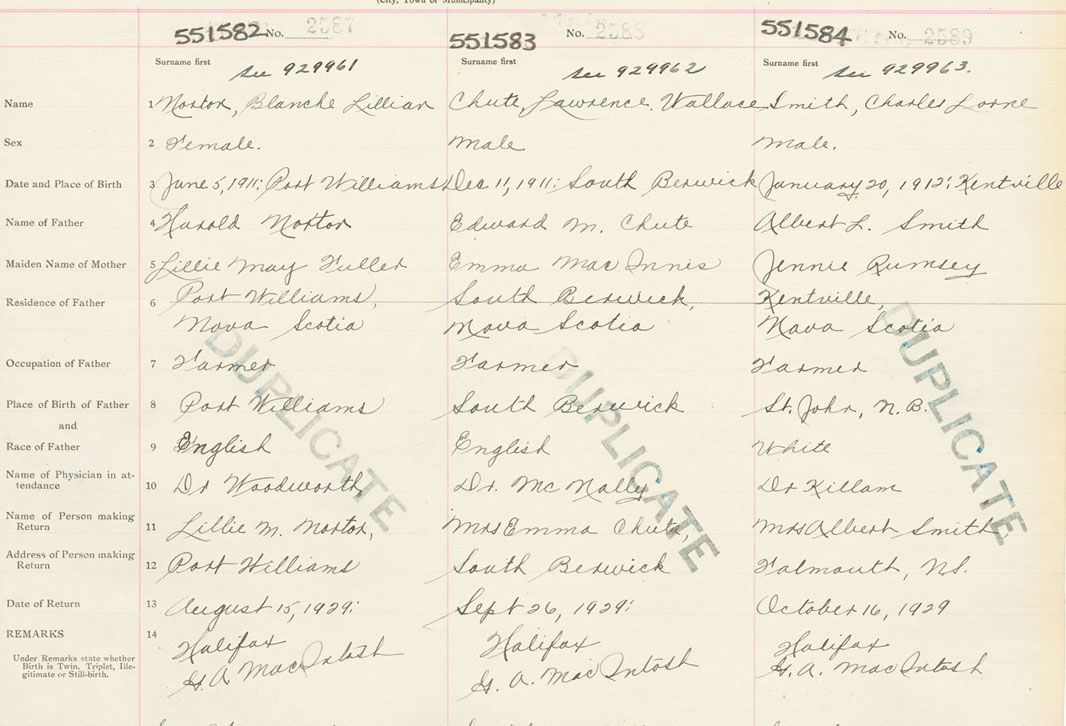 (City, Town or Municipality)
551582 No. 2587 551583 No. 2588 551584 No. 2589
Surname first Surname first Surname first
see 929961 see 929962 see 929963.
Name 1 Morton, Blanche Lillian Chute, Lawrence Wallace Smith, Charles Lorne
Sex 2 Female. Male Male.
Date and Place of Birth 3 June 5, 1911; Port Williams Dec 11, 1911; South Berwick January 20, 1912; Kentville
Name of Father 4 Harold Morton Edward M. Chute Albert L. Smith
Maiden Name of Mother 5 Lillie May Fuller Emma MacInnis Jennie Rumsey
Residence of Father 6 Port Williams, South Berwick, Kentville,
Nova Scotia Nova Scotia Nova Scotia
Occupation of Father 7 Farmer Farmer Farmer
Place of Birth of Father 8 Port Williams South Berwick St. John, N.B.
and
Race of Father 9 English English White
Name of Physician in at-
tendance 10 Dr Woodworth Dr. McNally Dr Killam
Name of Person making
Return 11 Lillie M. Morton, Mrs Emma Chute, Mrs Albert Smith
Address of Person making
Return 12 Port Williams South Berwick Falmouth, NS.
Date of Return 13 August 15, 1929; Sept 26, 1929; October 16, 1929
REMARKS 14 Halifax Halifax Halifax
G. A. MacIntosh G. A. MacIntosh G. A. MacIntosh
Under Remarks state whether
Birth is Twin, Triplet, Ille-
gitimate or Still-birth.
DUPLICATE DUPLICATE DUPLICATE